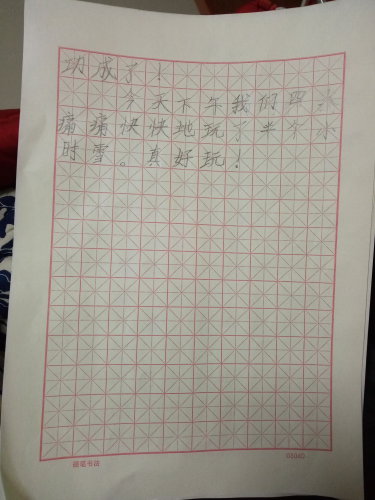 功成了！
今天下午我们四
痛痛快快地玩了半个小
时雪。真好玩！
硬笔书法